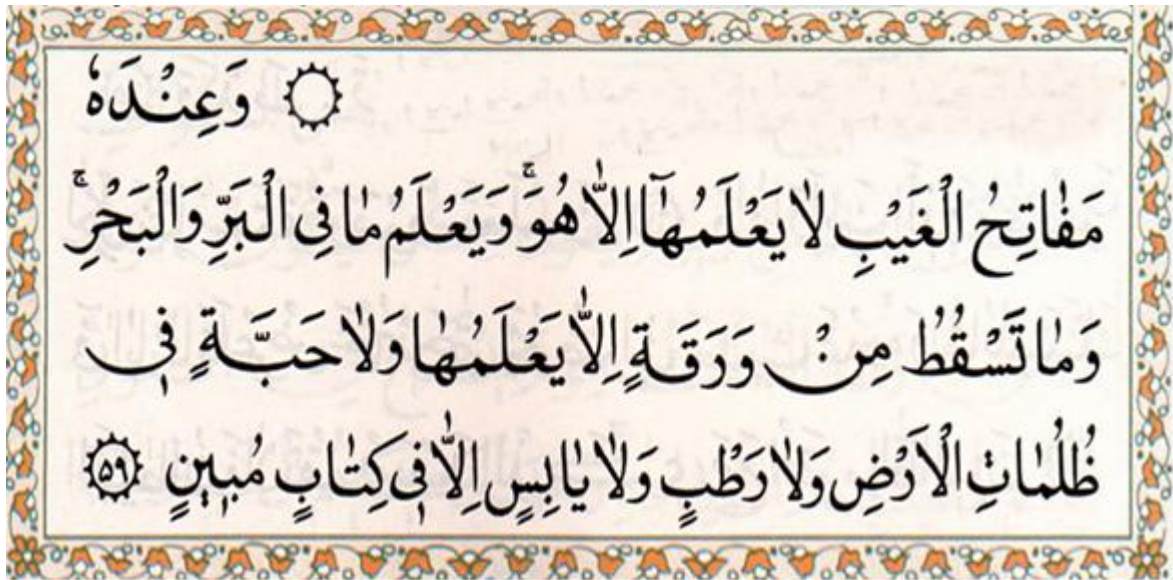 وَعِنْدَهُ
مَفَاتِحُ الْغَيْبِ لَا يَعْلَمُهَٓا اِلَّا هُوَۚ وَيَعْلَمُ مَا فِى الْبَرِّ وَالْبَحْرِۚ
وَمَا تَسْقُطُ مِنْ وَرَقَةٍ اِلَّا يَعْلَمُهَا وَلَا حَبَّةٍ فٖى
ظُلُمَاتِ الْاَرْضِ وَلَا رَطْبٍ وَلَا يَابِسٍ اِلَّا فٖى كِتَابٍ مُبٖينٍ ۝٥٩